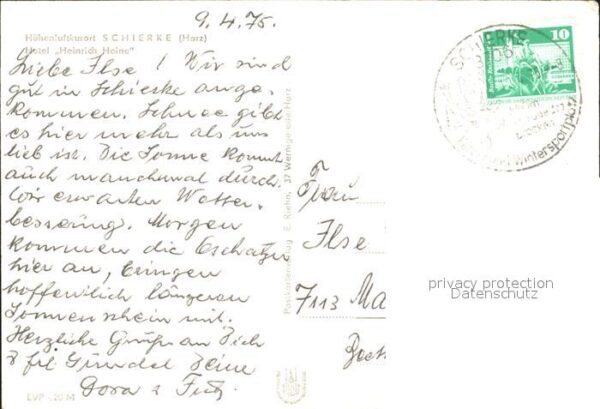 9.4.75.
Höhenluftkurort SCHIERKE (Harz)
Hotel „Heinrich Heine"
Liebe Ilse! Wir sind
gut in Schierke ange-
kommen. Schnee gibt
es hier mehr als uns
lieb ist. Die Sonne kommt
auch manchmal durch.
Wir erwarten Wetter-
besserung. Morgen
kommen die
hier an, bringen
hoffentlich längeren
Sonnenschein mit.
Herzliche Grüße an Dich
Deine
Dora
EVP -,20 M
Postkartenverlag E. Riehn, 37 Wernigerode/Harz
Frau
Ilse
7113 Ma
10
SCHIERKE
Wintersportplatz
privacy protection
Datenschutz